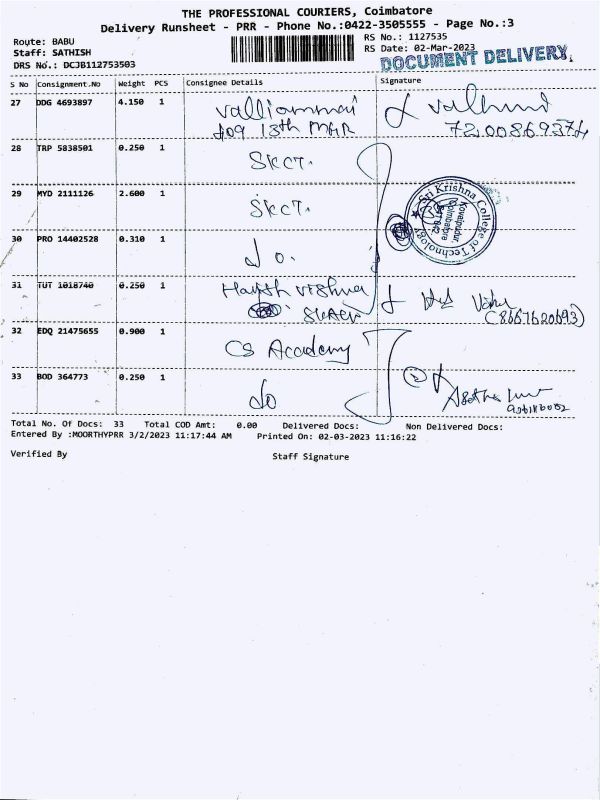 THE PROFESSIONAL COURIERS, Coimbatore
Delivery Runsheet - PRR - Phone No.:0422-3505555 - Page No.:3
Route: BABU
Staff: SATHISH
DRS No.: DCJB112753503
RS No.: 1127535
RS Date: 02-Mar-2023
DOCUMENT DELIVERY
S No Consignment.No Weight PCS Consignee Details Signature
27 DDG 4693897 4.150 1 Valliammai
409 13th
7200869374
28 TRP 5838501 0.250 1 SKCT.
29 MYD 2111126 2.600 1 SKCT.
Sri Krishna College of Technology
Kovaipudur
Coimbatore
641 042
30 PRO 14402528 0.310 1 do.
31 TUT 1018740 0.250 1 Harish Vishna
(8667620693)
32 EDQ 21475655 0.900 1 CS Academy
33 BOD 364773 0.250 1 do
Total No. Of Docs: 33 Total COD Amt: 0.00 Delivered Docs: Non Delivered Docs:
Entered By :MOORTHYPRR 3/2/2023 11:17:44 AM Printed On: 02-03-2023 11:16:22
Verified By Staff Signature